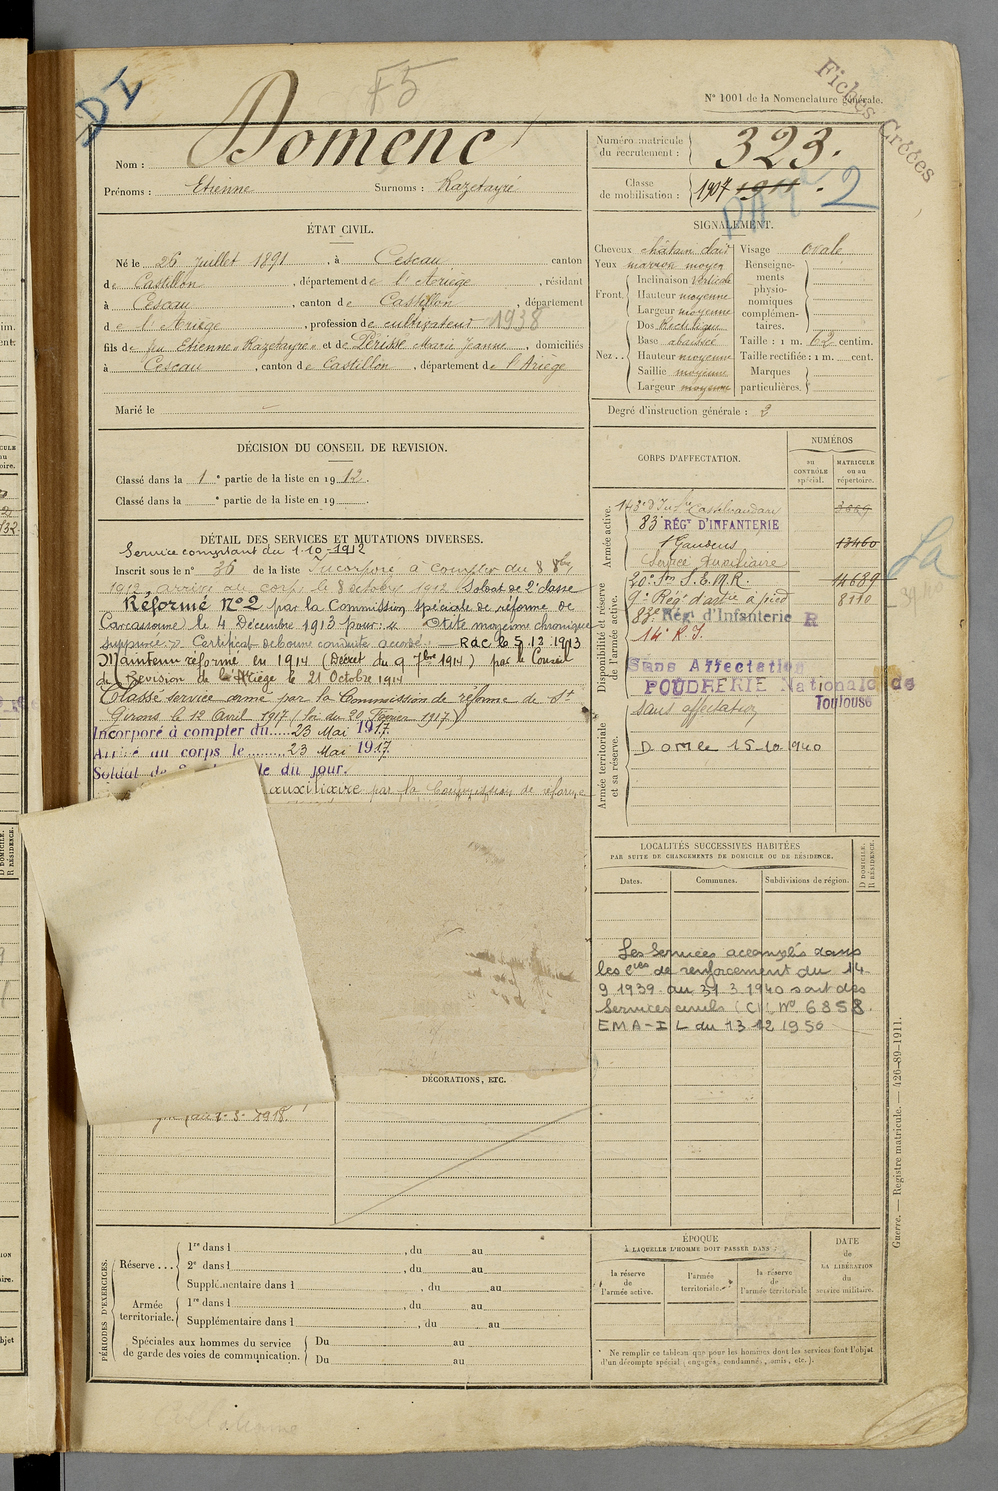 DI
F5
Fiches Créées
N° 1001 de la Nomenclature générale.
Nom : Domenc
Prénoms : Etienne Surnoms : Razetayré
Numéro matricule du recrutement : 323.
Classe de mobilisation : 1907 1911 . 2
ÉTAT CIVIL.
Né le 26 juillet 1891, à Cescau canton
de Castillon, département de l'Ariège, résidant
à Cescau, canton de Castillon, département
de l'Ariège, profession de cultivateur 1938
fils de feu Etienne "Razetayré" et de Périsse Marie Jeanne, domiciliés
à Cescau, canton de Castillon, département de l'Ariège
Marié le
SIGNALEMENT.
Cheveux châtain clair
Yeux marron moyen
Front. Inclinaison Verticale
Hauteur moyenne
Largeur moyenne
Nez.. Dos Rectiligne
Base abaissée
Hauteur moyenne
Saillie moyenne
Largeur moyenne
Visage ovale
Renseignements physionomiques complémentaires.
Taille : 1 m. 62 centim.
Taille rectifiée : 1 m. cent.
Marques particulières.
Degré d'instruction générale : 2
DÉCISION DU CONSEIL DE REVISION.
Classé dans la 1e partie de la liste en 1912.
Classé dans la e partie de la liste en 19
DÉTAIL DES SERVICES ET MUTATIONS DIVERSES.
Service comptant du 1-10-1912
Inscrit sous le n° 36 de la liste Incorporé à compter du 8 8bre
1912, arrivé au corps le 8 octobre 1912 Soldat de 2e classe
Réformé N°2 par la Commission spéciale de réforme de
Carcassonne le 4 Décembre 1913 pour: " Otite moyenne chronique
suppurée". Certificat de bonne conduite accordé. Rac le 5.12.1913
Maintenu réformé en 1914 (Décret du 9 7bre 1914) par le Conseil
de Revision de l'Ariège le 21 Octobre 1914
Classé service armé par la Commission de réforme de St
Girons le 12 Avril 1917 (loi du 20 Février 1917)
Incorporé à compter du 23 Mai 1917.
Arrivé au corps le 23 Mai 1917.
Soldat de le du jour.
auxiliaire par la Commission de réforme
1918.
DÉCORATIONS, ETC.
CORPS D'AFFECTATION.
NUMÉROS
au CONTRÔLE spécial.
MATRICULE ou au répertoire.
Armée active.
143e d'Infrie Castelnaudary
83e RÉGT D'INFANTERIE
St Gaudens 13460
Service Auxiliaire
Disponibilité et réserve de l'armée active.
20e Son S.E.M.R. 14689
9e Régt d'artie à pied 8110
83e Régt d'Infanterie R
14e R.I.
Sans Affectation
POUDRERIE Nationale de Toulouse
Armée territoriale et sa réserve.
sans affectation
D OM le 15.10.1940
LOCALITÉS SUCCESSIVES HABITÉES
PAR SUITE DE CHANGEMENTS DE DOMICILE OU DE RÉSIDENCE.
Dates. Communes. Subdivisions de région. D DOMICILE. R RÉSIDENCE.
Les Services accomplis dans
les cies de renforcement du 14
9 1939 au 31 3 1940 sont des
Services civils (CI) N° 6858
EMA-IL du 13 12 1950
PÉRIODES D'EXERCICES.
Réserve ... 1re dans l , du au
2e dans l , du au
Supplémentaire dans l , du au
Armée territoriale. 1re dans l , du au
Supplémentaire dans l , du au
Spéciales aux hommes du service de garde des voies de communication. Du au
Du au
ÉPOQUE
À LAQUELLE L'HOMME DOIT PASSER DANS :
la réserve de l'armée active.
l'armée territoriale.
la réserve de l'armée territoriale
DATE de LA LIBÉRATION du service militaire.
* Ne remplir ce tableau que pour les hommes dont les services font l'objet
d'un décompte spécial (engagés, condamnés, omis, etc.).
Guerre. — Registre matricule. — 426-89-1911.